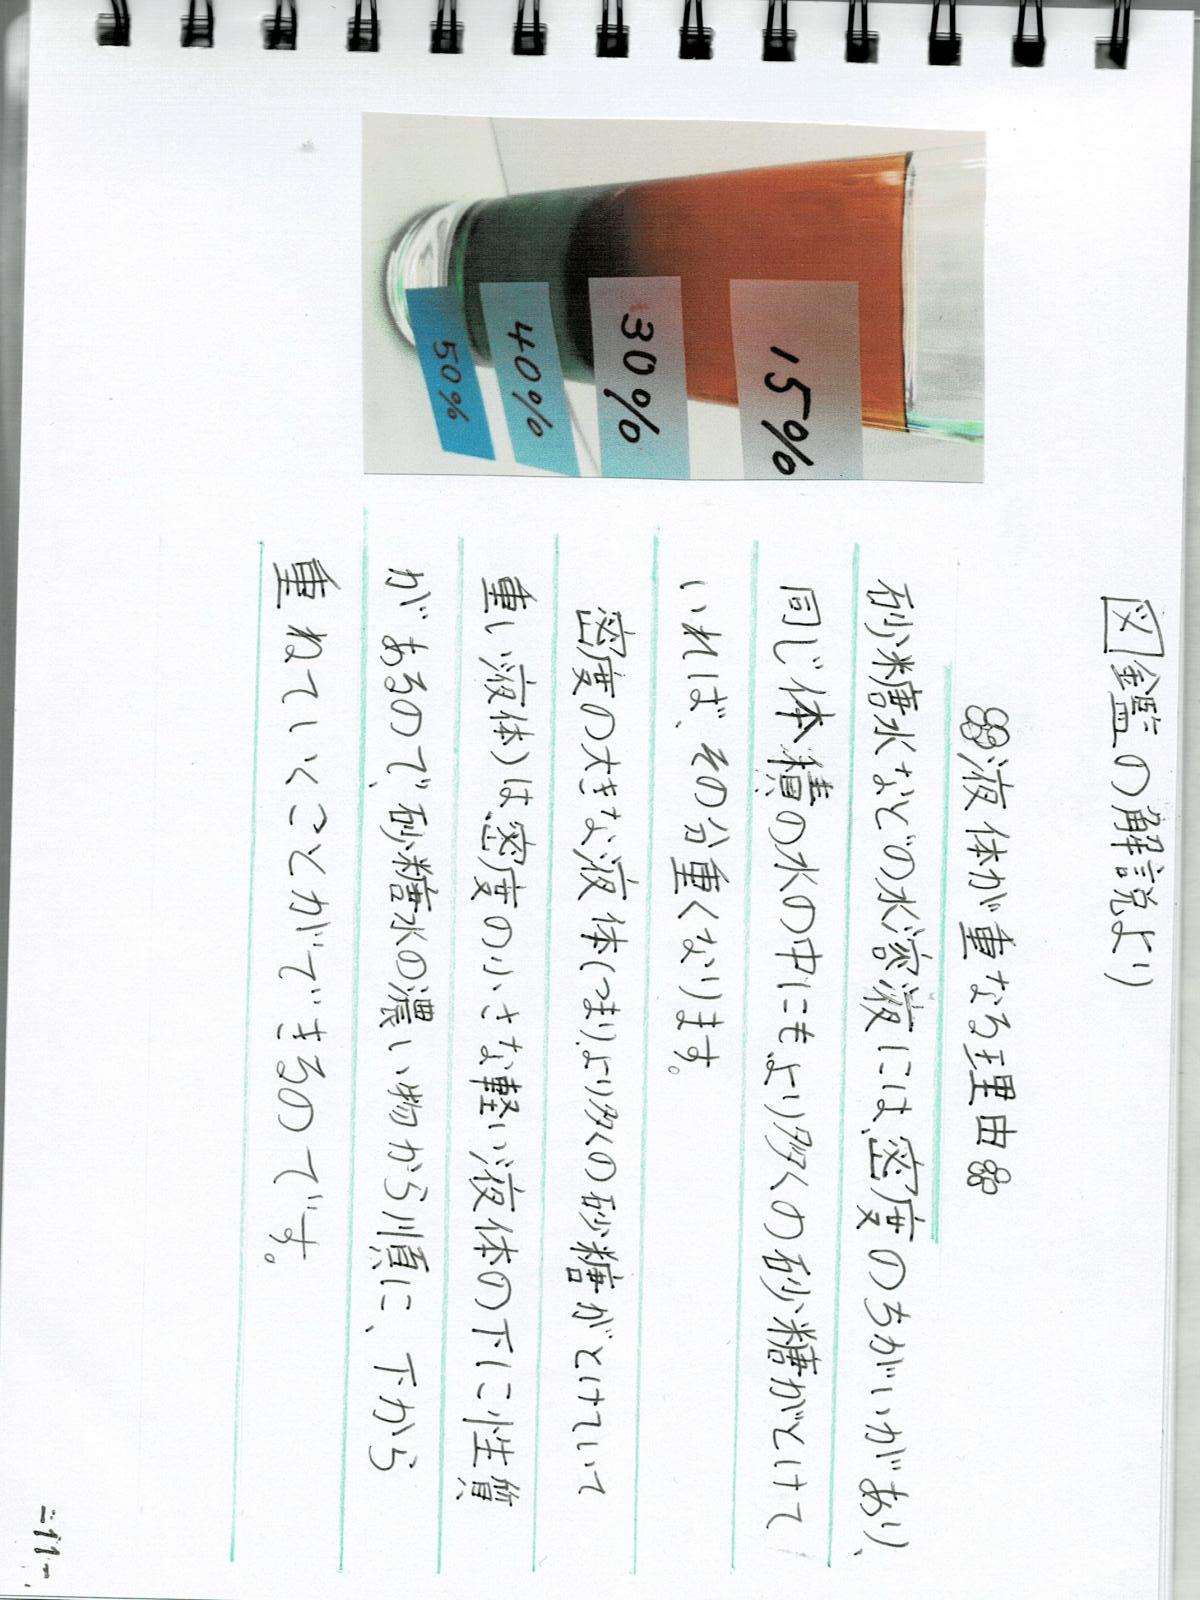 図鑑の解説より
液体が重なる理由
砂糖水などの水溶液には、密度のちがいがあり、
同じ体積の水の中にもより多くの砂糖がとけて
いれば、その分重くなります。
密度の大きな液体(つまりより多くの砂糖がとけていて
重い液体)は密度の小さな軽い液体の下に性質
があるので、砂糖水の濃い物から順に、下から
重ねていくことができるのです。
15%
30%
40%
50%
-11-